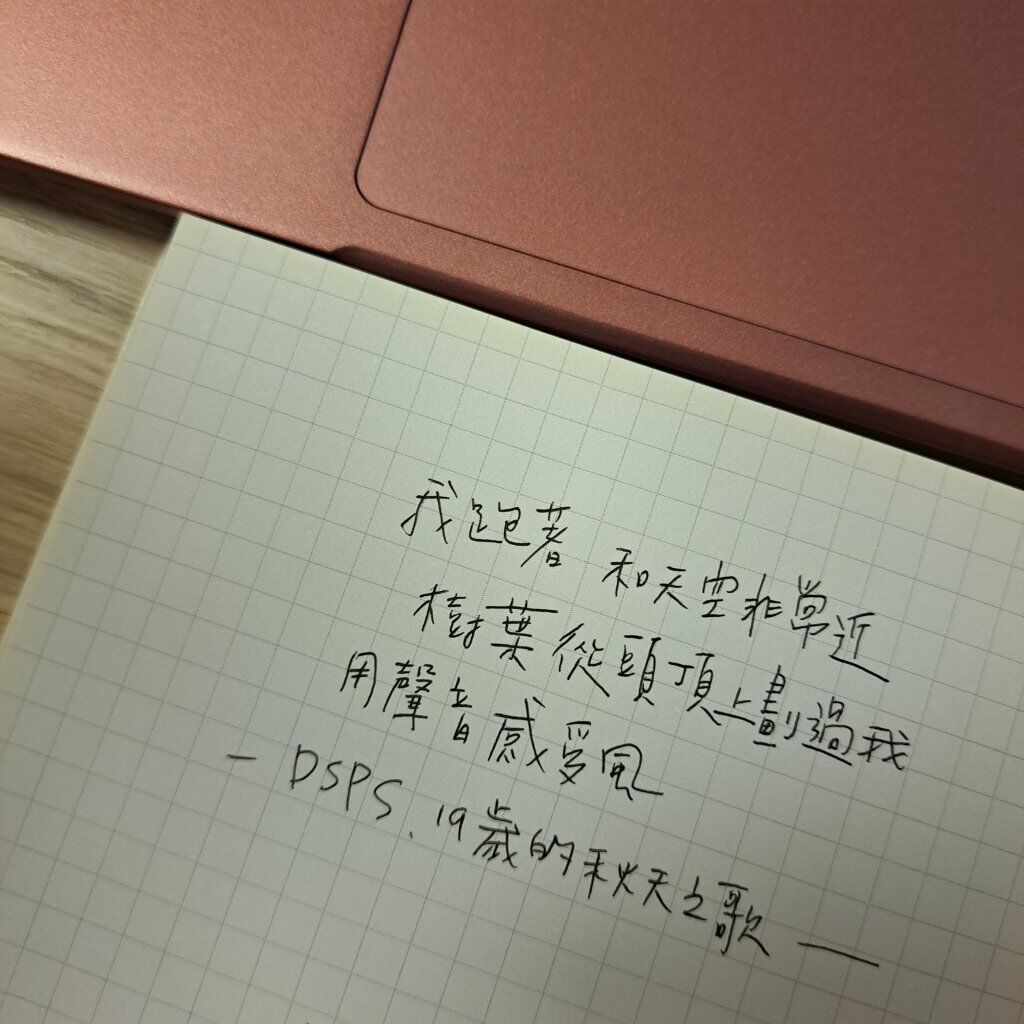 我跑著 和天空非常近
樹葉從頭頂上劃過我
用聲音感受風
- DSPS、19歲的秋天之歌 —